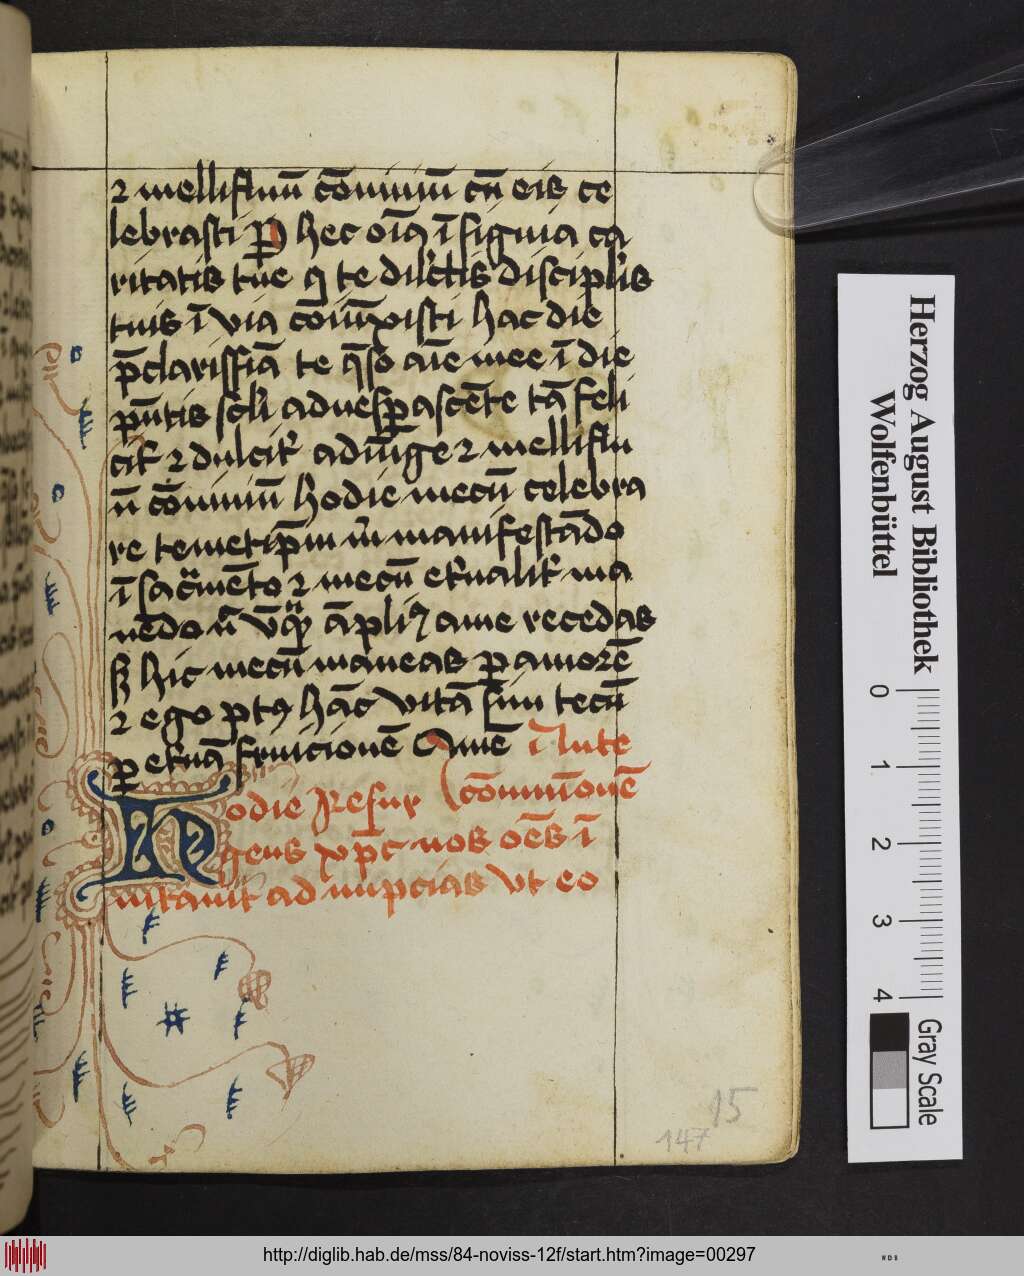 ⁊ mellifluū cōuiuiū cū eis ce
lebrasti P̲ hec oīa ī signia ca
ritatis tue q̄ te dilc̄tis discipl'is
tuis ī via cōiūxisti hac die
p̄clarissīa te q̄so aīe mee ī die
pn̄tis scl̄i aduesp̲ascēte tā feli
cit' ⁊ dulcit' adiūge ⁊ melliflu
ū cōuiuiū hodie mecū celebra
re temetip̄m m̄ manifestādo
ī sacͣmēto ⁊ mecū et'nalit' ma
nēdo nū̄ āpli᷒ a me recedas
sꝫ hic mecū maneas p̲ amorē
⁊ ego p̲ totꝰ hāc vitā sim tecū
p̲ et'nā fruicionē Amē ī Ante
Hodie Resur cōmūionē
gens xp̄c nos oēs ī
uitauit ad nupcias vt eo
15
147
Herzog August Bibliothek
Wolfenbüttel
0 1 2 3 4
Gray Scale
http://diglib.hab.de/mss/84-noviss-12f/start.htm?image=00297